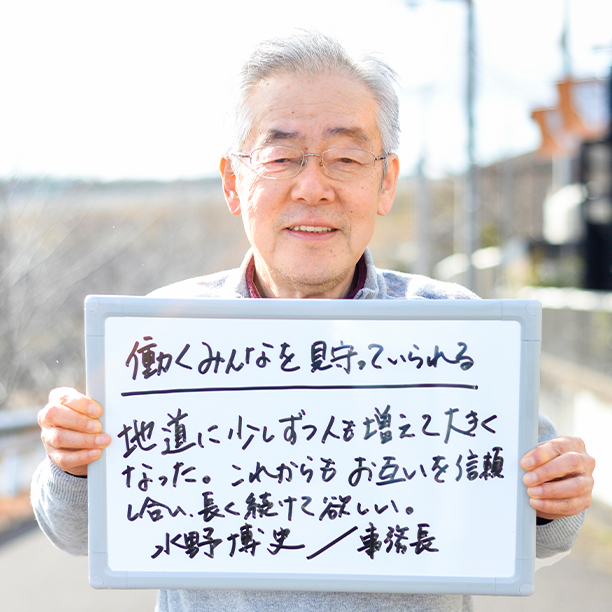 働くみんなを見守っていられる
地道に少しずつ人も増えて大きく
なった。これからもお互いを信頼
し合い、長く続けて欲しい。
水野博史／事務長